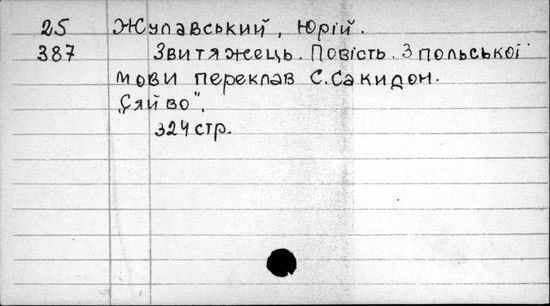 25 Жулавський, Юрій.
387 Звитяжець. Повість. З польської
мови переклав С. Сакидон.
„Сяйво".
324 стр.